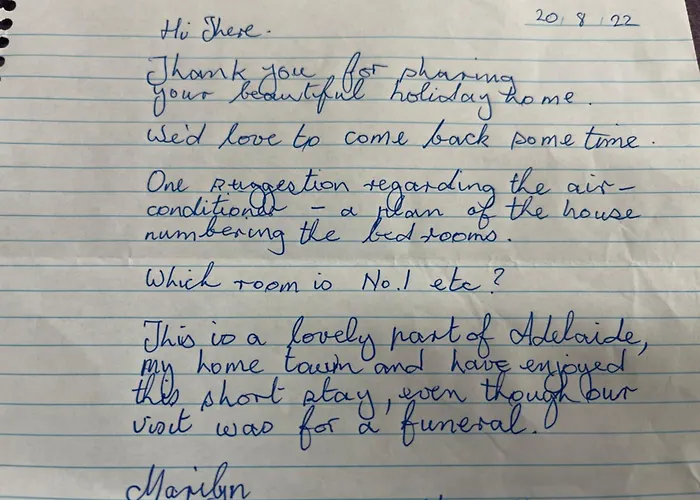 20/8/22
Hi There.
Thank you for sharing
your beautiful holiday home.
We'd love to come back some time.
One suggestion regarding the air-
conditioner - a plan of the house
numbering the bedrooms.
Which room is No.1 etc?
This is a lovely part of Adelaide,
my home town and have enjoyed
this short stay, even though our
visit was for a funeral.
Marilyn